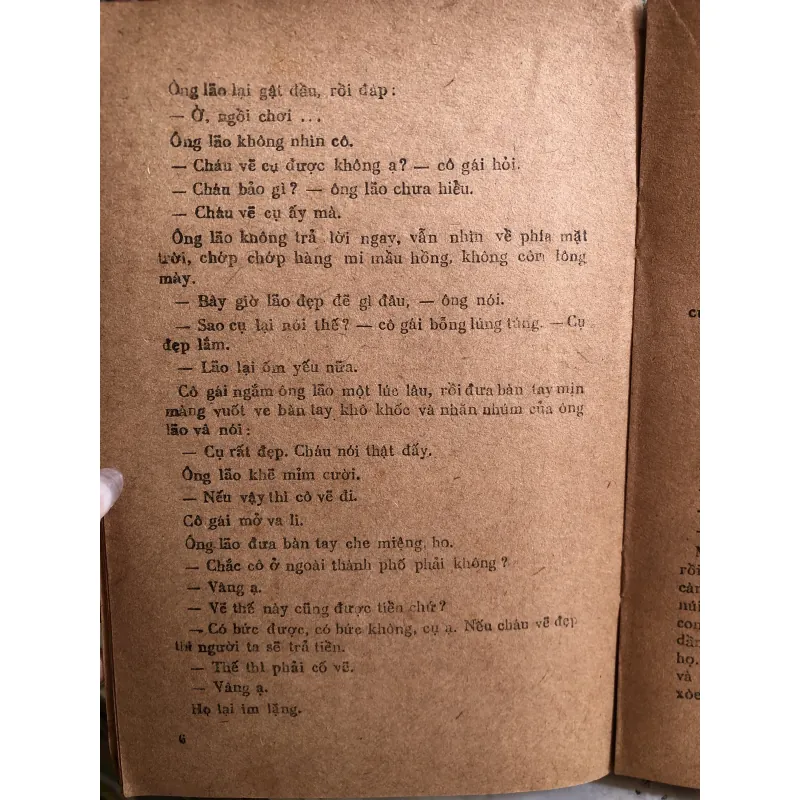 Ông lão lại gật đầu, rồi đáp:
— Ờ, ngồi chơi ...
Ông lão không nhìn cô.
— Cháu vẽ cụ được không ạ? — cô gái hỏi.
— Cháu bảo gì? — ông lão chưa hiểu.
— Cháu vẽ cụ ấy mà.
Ông lão không trả lời ngay, vẫn nhìn về phía mặt
trời, chớp chớp hàng mi mầu hồng, không còn lông
mày.
— Bây giờ lão đẹp đẽ gì đâu, — ông nói.
— Sao cụ lại nói thế? — cô gái bỗng lúng túng. — Cụ
đẹp lắm.
— Lão lại ốm yếu nữa.
Cô gái ngắm ông lão một lúc lâu, rồi đưa bàn tay mịn
màng vuốt ve bàn tay khô khốc và nhăn nhúm của ông
lão và nói:
— Cụ rất đẹp. Cháu nói thật đấy.
Ông lão khẽ mỉm cười.
— Nếu vậy thì cô vẽ đi.
Cô gái mở va li.
Ông lão đưa bàn tay che miệng, ho.
— Chắc cô ở ngoài thành phố phải không?
— Vâng ạ.
— Vẽ thế này cũng được tiền chứ?
— Có bức được, có bức không, cụ ạ. Nếu cháu vẽ đẹp
thì người ta sẽ trả tiền.
— Thế thì phải cố vẽ.
— Vâng ạ.
Họ lại im lặng.
6
rồi
núi
con
họ.
và
xòe